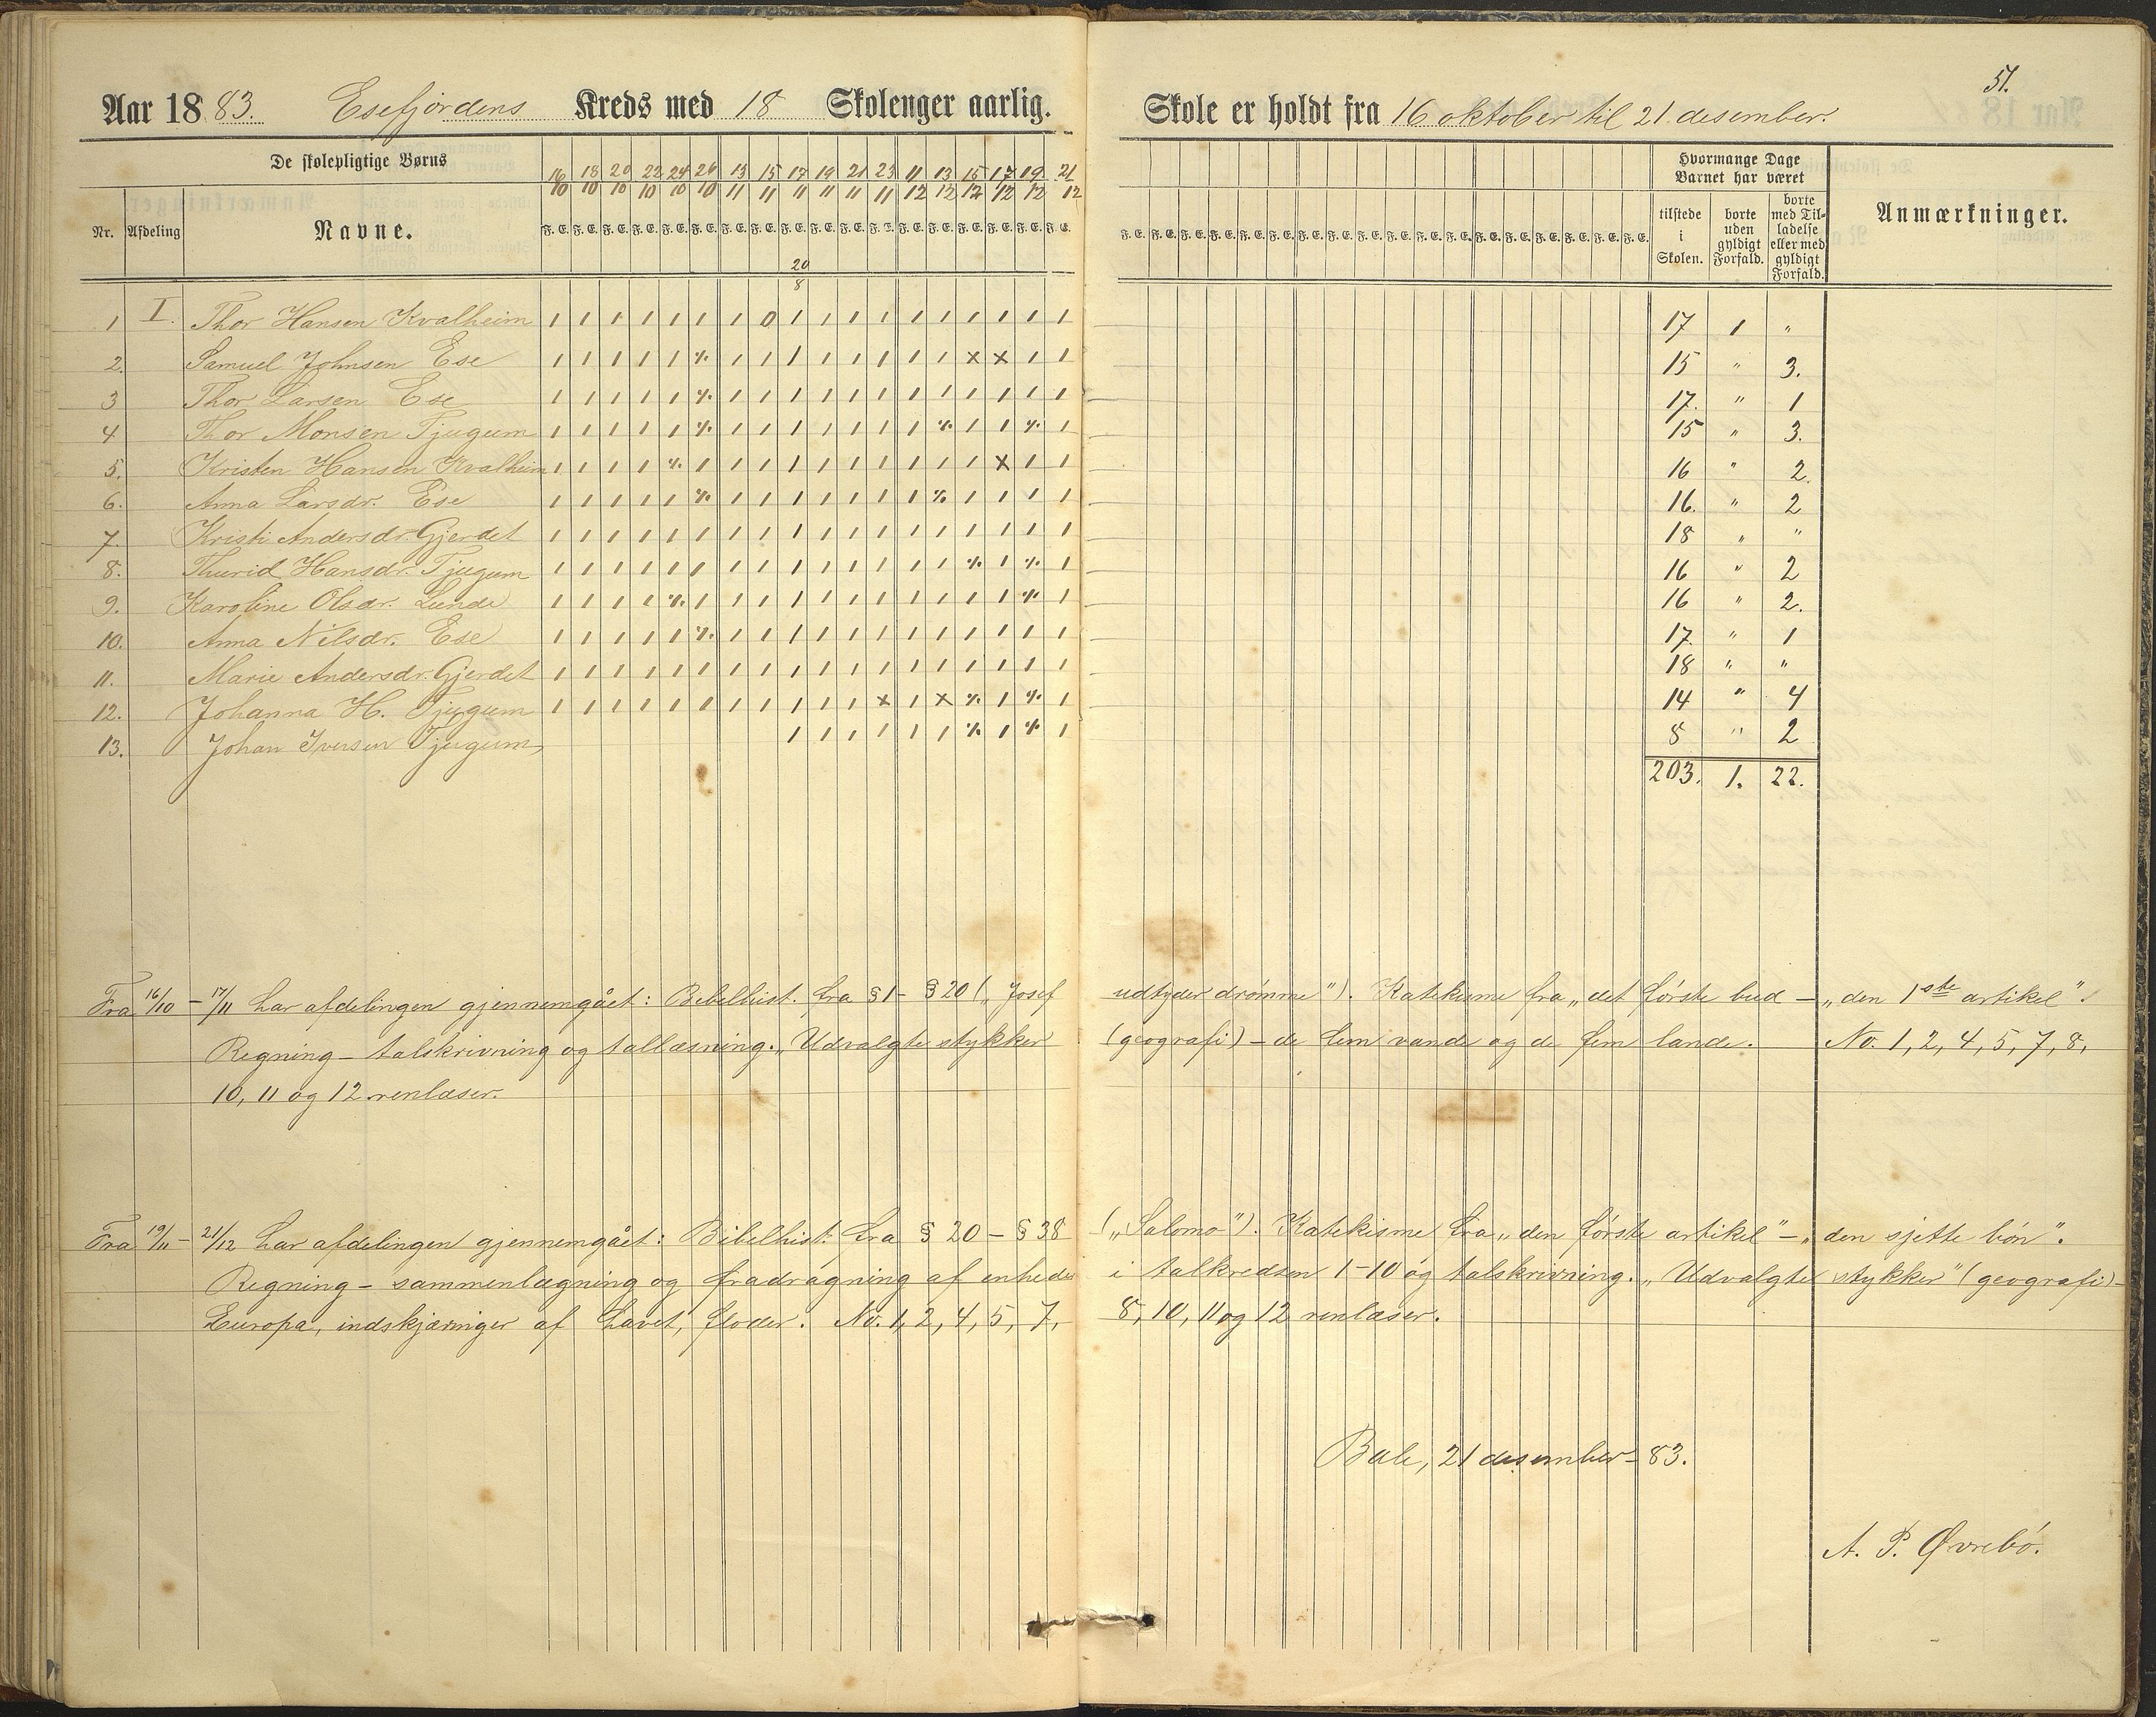 51.
Aar 1883. Esefjördens Kreds med 18 Skolenger aarlig. Skole er holdt fra 16 oktober til 21 desember.
De skolepligtige Børns
Nr. Afdeling Navne.
16/10 18/10 20/10 22/10 24/10 26/10 13/11 15/11 17/11 19/11 21/11 23/11 11/12 13/12 15/12 17/12 19/12 21/12
F. E. F. E. F. E. F. E. F. E. F. E. F. E. F. E. F. E. F. E. F. E. F. E. F. E. F. E. F. E. F. E. F. E. F. E.
Hvormange Dage Barnet har været
tilstede i Skolen.
borte uden gyldigt Forfald.
borte med Tilladelse eller med gyldigt Forfald.
Anmærkninger.
20/8
1 I. Thor Hansen Kvalheim 1 1 1 1 1 1 1 0 1 1 1 1 1 1 1 1 1 1 17 1 "
2. Samuel Johnsen Ese 1 1 1 1 1 % 1 1 1 1 1 1 1 1 x x 1 1 15 " 3.
3 Thor Larsen Ese 1 1 1 1 1 % 1 1 1 1 1 1 1 1 1 1 1 1 17. " 1
4 Thor Monsen Tjugum 1 1 1 1 1 % 1 1 1 1 1 1 1 % 1 1 % 1 15 " 3.
5. Kristen Hansen Kvalheim 1 1 1 1 % 1 1 1 1 1 1 1 1 1 1 x 1 1 16 " 2.
6. Anna Larsdr. Ese 1 1 1 1 1 % 1 1 1 1 1 1 1 % 1 1 1 1 16. " 2
7. Kristi Andersdr. Gjerdet 1 1 1 1 1 1 1 1 1 1 1 1 1 1 1 1 1 1 18 " "
8. Thurid Hansdr. Tjugum 1 1 1 1 1 1 1 1 1 1 1 1 1 1 % 1 % 1 16 " 2
9. Karoline Olsdr. Lunde 1 1 1 1 % 1 1 1 1 1 1 1 1 1 1 1 % 1 16 " 2.
10. Anna Nilsdr. Ese 1 1 1 1 1 % 1 1 1 1 1 1 1 1 1 1 1 1 17. " 1
11. Marie Andersdr. Gjerdet 1 1 1 1 1 1 1 1 1 1 1 1 1 1 1 1 1 1 18 " "
12. Johanna H. Tjugum 1 1 1 1 1 1 1 1 1 1 1 x 1 x % 1 % 1 14 " 4
13. Johan Iversen Tjugum 1 1 1 1 1 1 % 1 % 1 8 " 2
203. 1. 22.
Fra 16/10 - 17/11 har afdelingen gjennemgået: Bibelhist. fra § 1 - § 20 („Josef udtyder drömme"). Katekisme fra „det förste bud - „den 1ste artikel".
Regning - talskrivning og tallæsning. „Udvalgte stykker (geografi) - de fem vande og de fem lande. No. 1, 2, 4, 5, 7, 8,
10, 11 og 12 renlæser.
Fra 19/11 - 21/12 har afdelingen gjennemgået: Bibelhist. fra § 20 - § 38 („Salomo"). Katekisme fra „den förste artikel" - „den sjette bön".
Regning - sammenlægning og fradragning af enheder i talkredsen 1-10 og talskrivning. „Udvalgte stykker" (geografi) -
Europa, indskjæringer af havet, floder. No. 1, 2, 4, 5, 7, 8, 10, 11 og 12 renlæser.
Bale, 21 desember - 83.
A. P. Øvrebö.